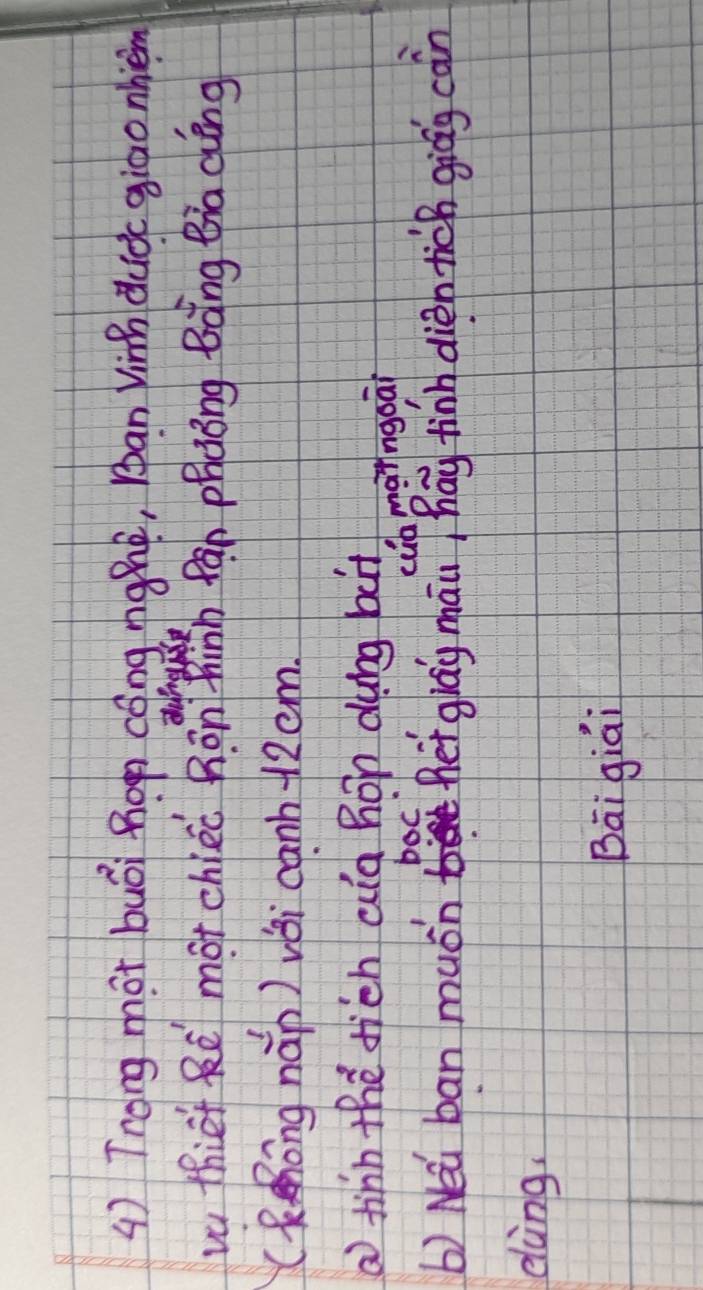 4) Trong một buổi họp công nghệ, Bạn Vinh được giao nhiệm
vụ thiết kế một chiếc hộp hình lập phương bằng bìa cứng
(không nắp) với cạnh 12cm.
a) tính thể tích của hộp dựng bút
b) Nếu bạn muốn bọc hết giấy màu của mặt ngoài, hãy tính diện tích giấy cần
dùng.
Bài giải